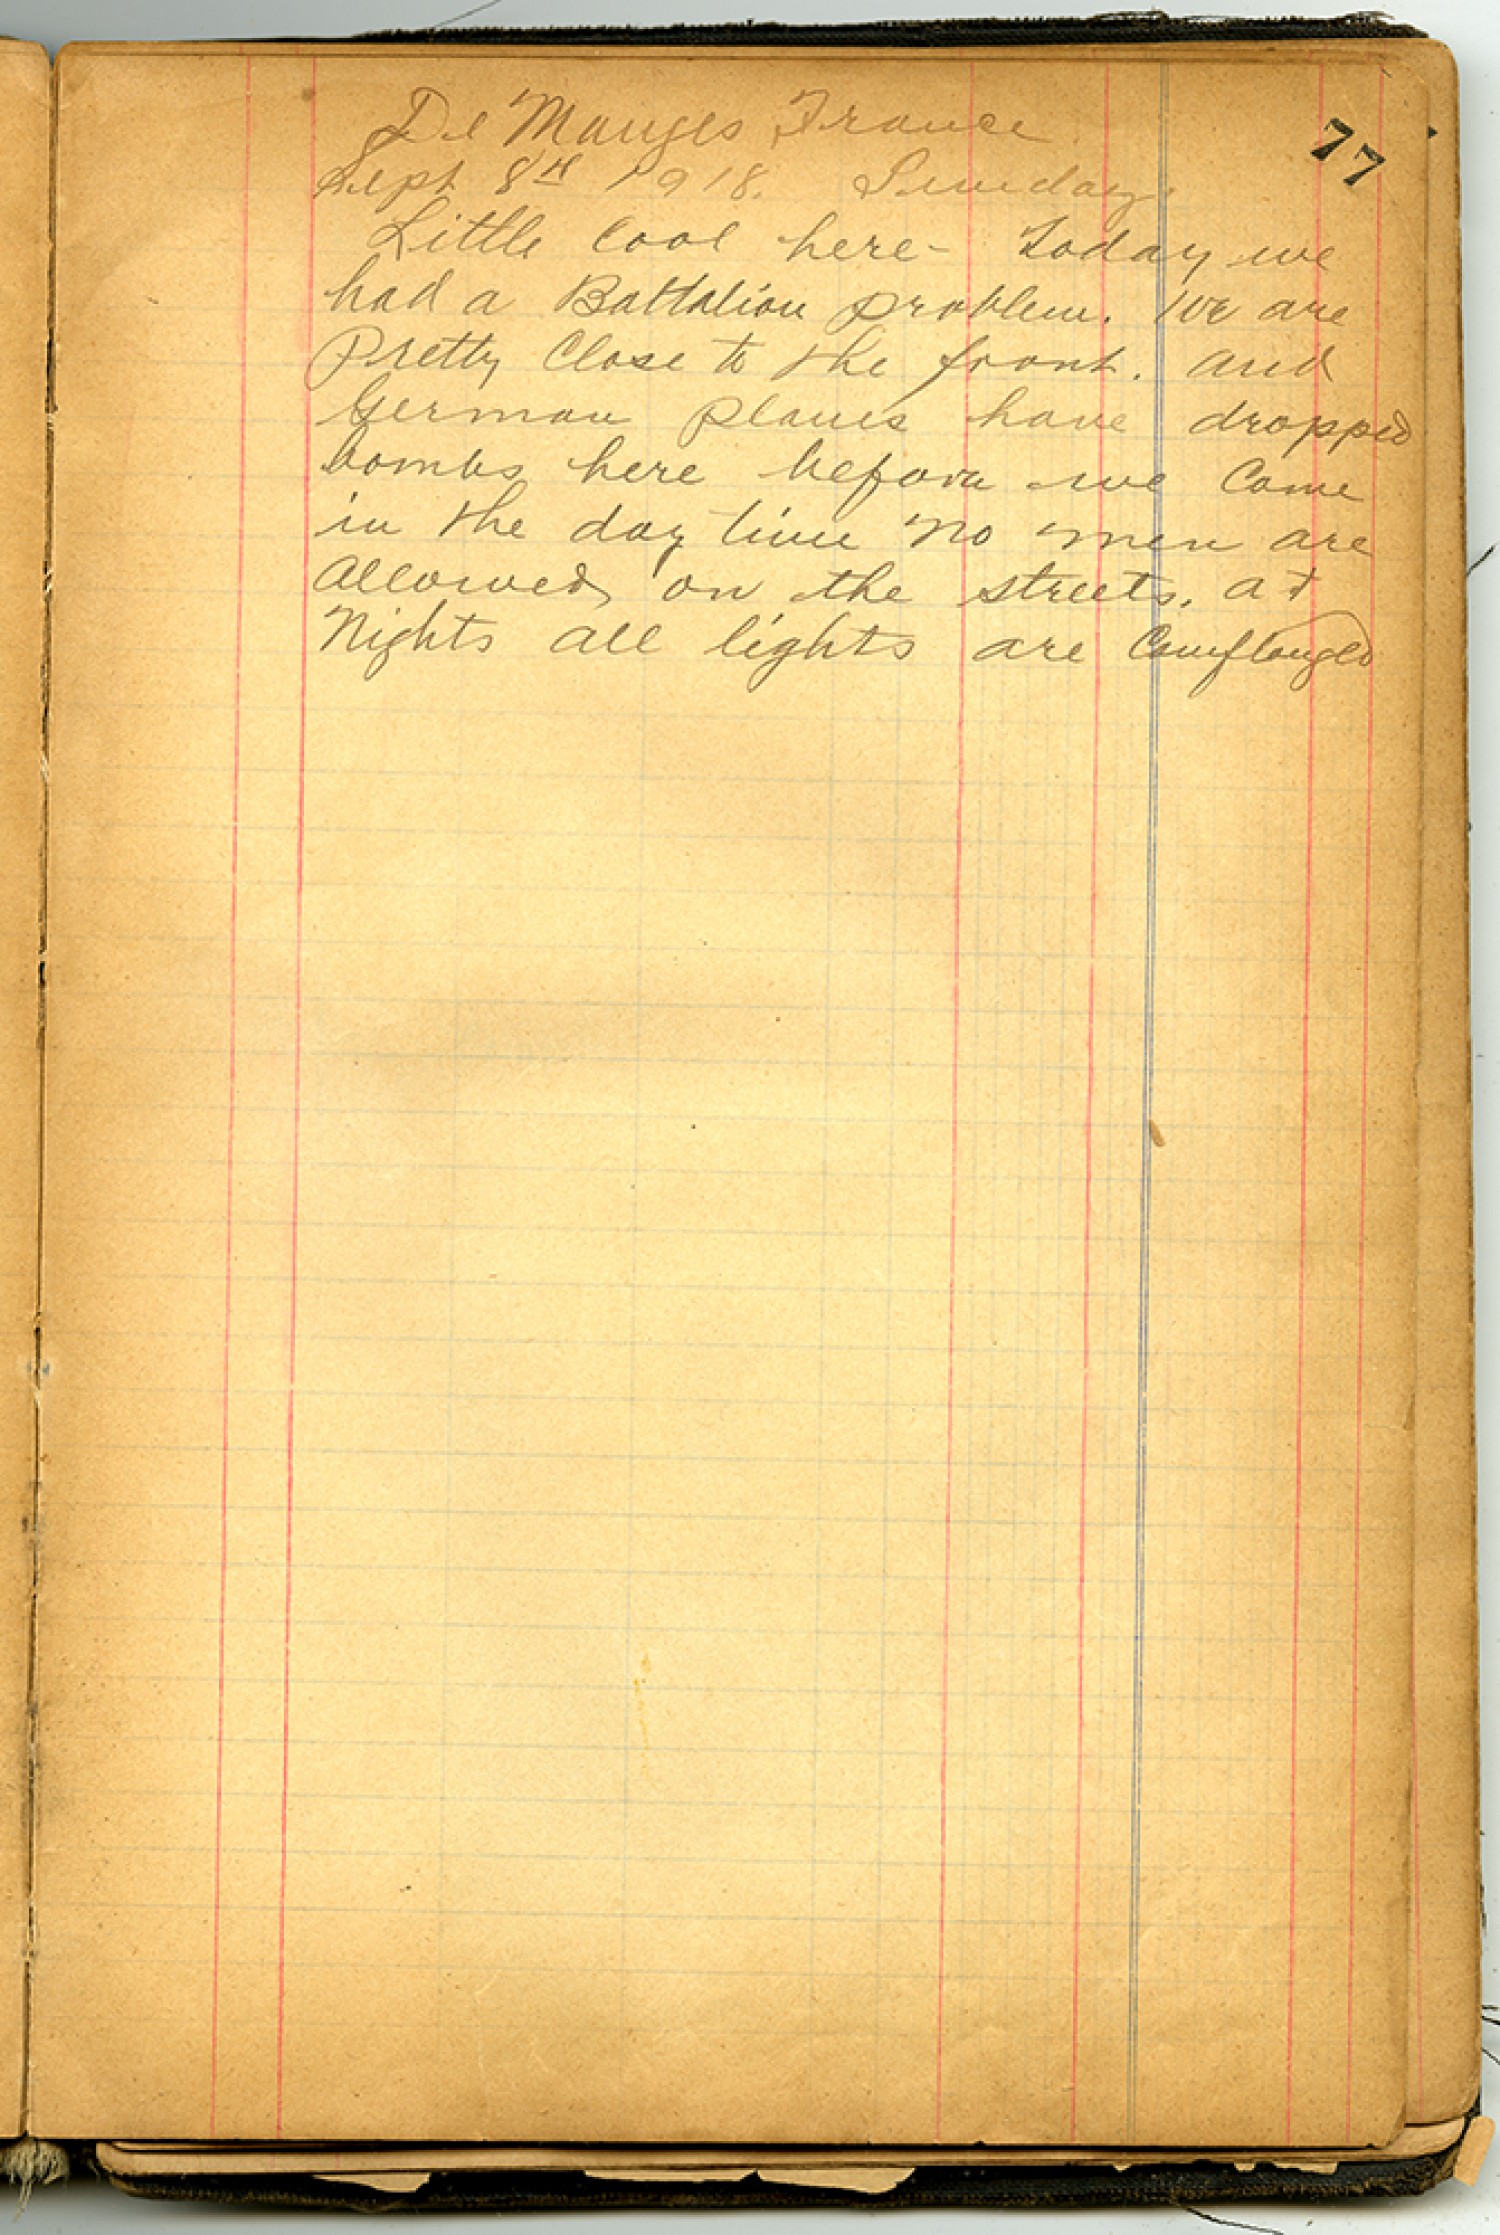 77
De Manges France
Sept 8th 1918. Sunday.
Little Cool here - Today we
had a Battalion problem. We are
Pretty Close to the front. and
German planes have dropped
bombs here before we Came
in the day time no men are
allowed on the streets. at
Nights all lights are Camflouged